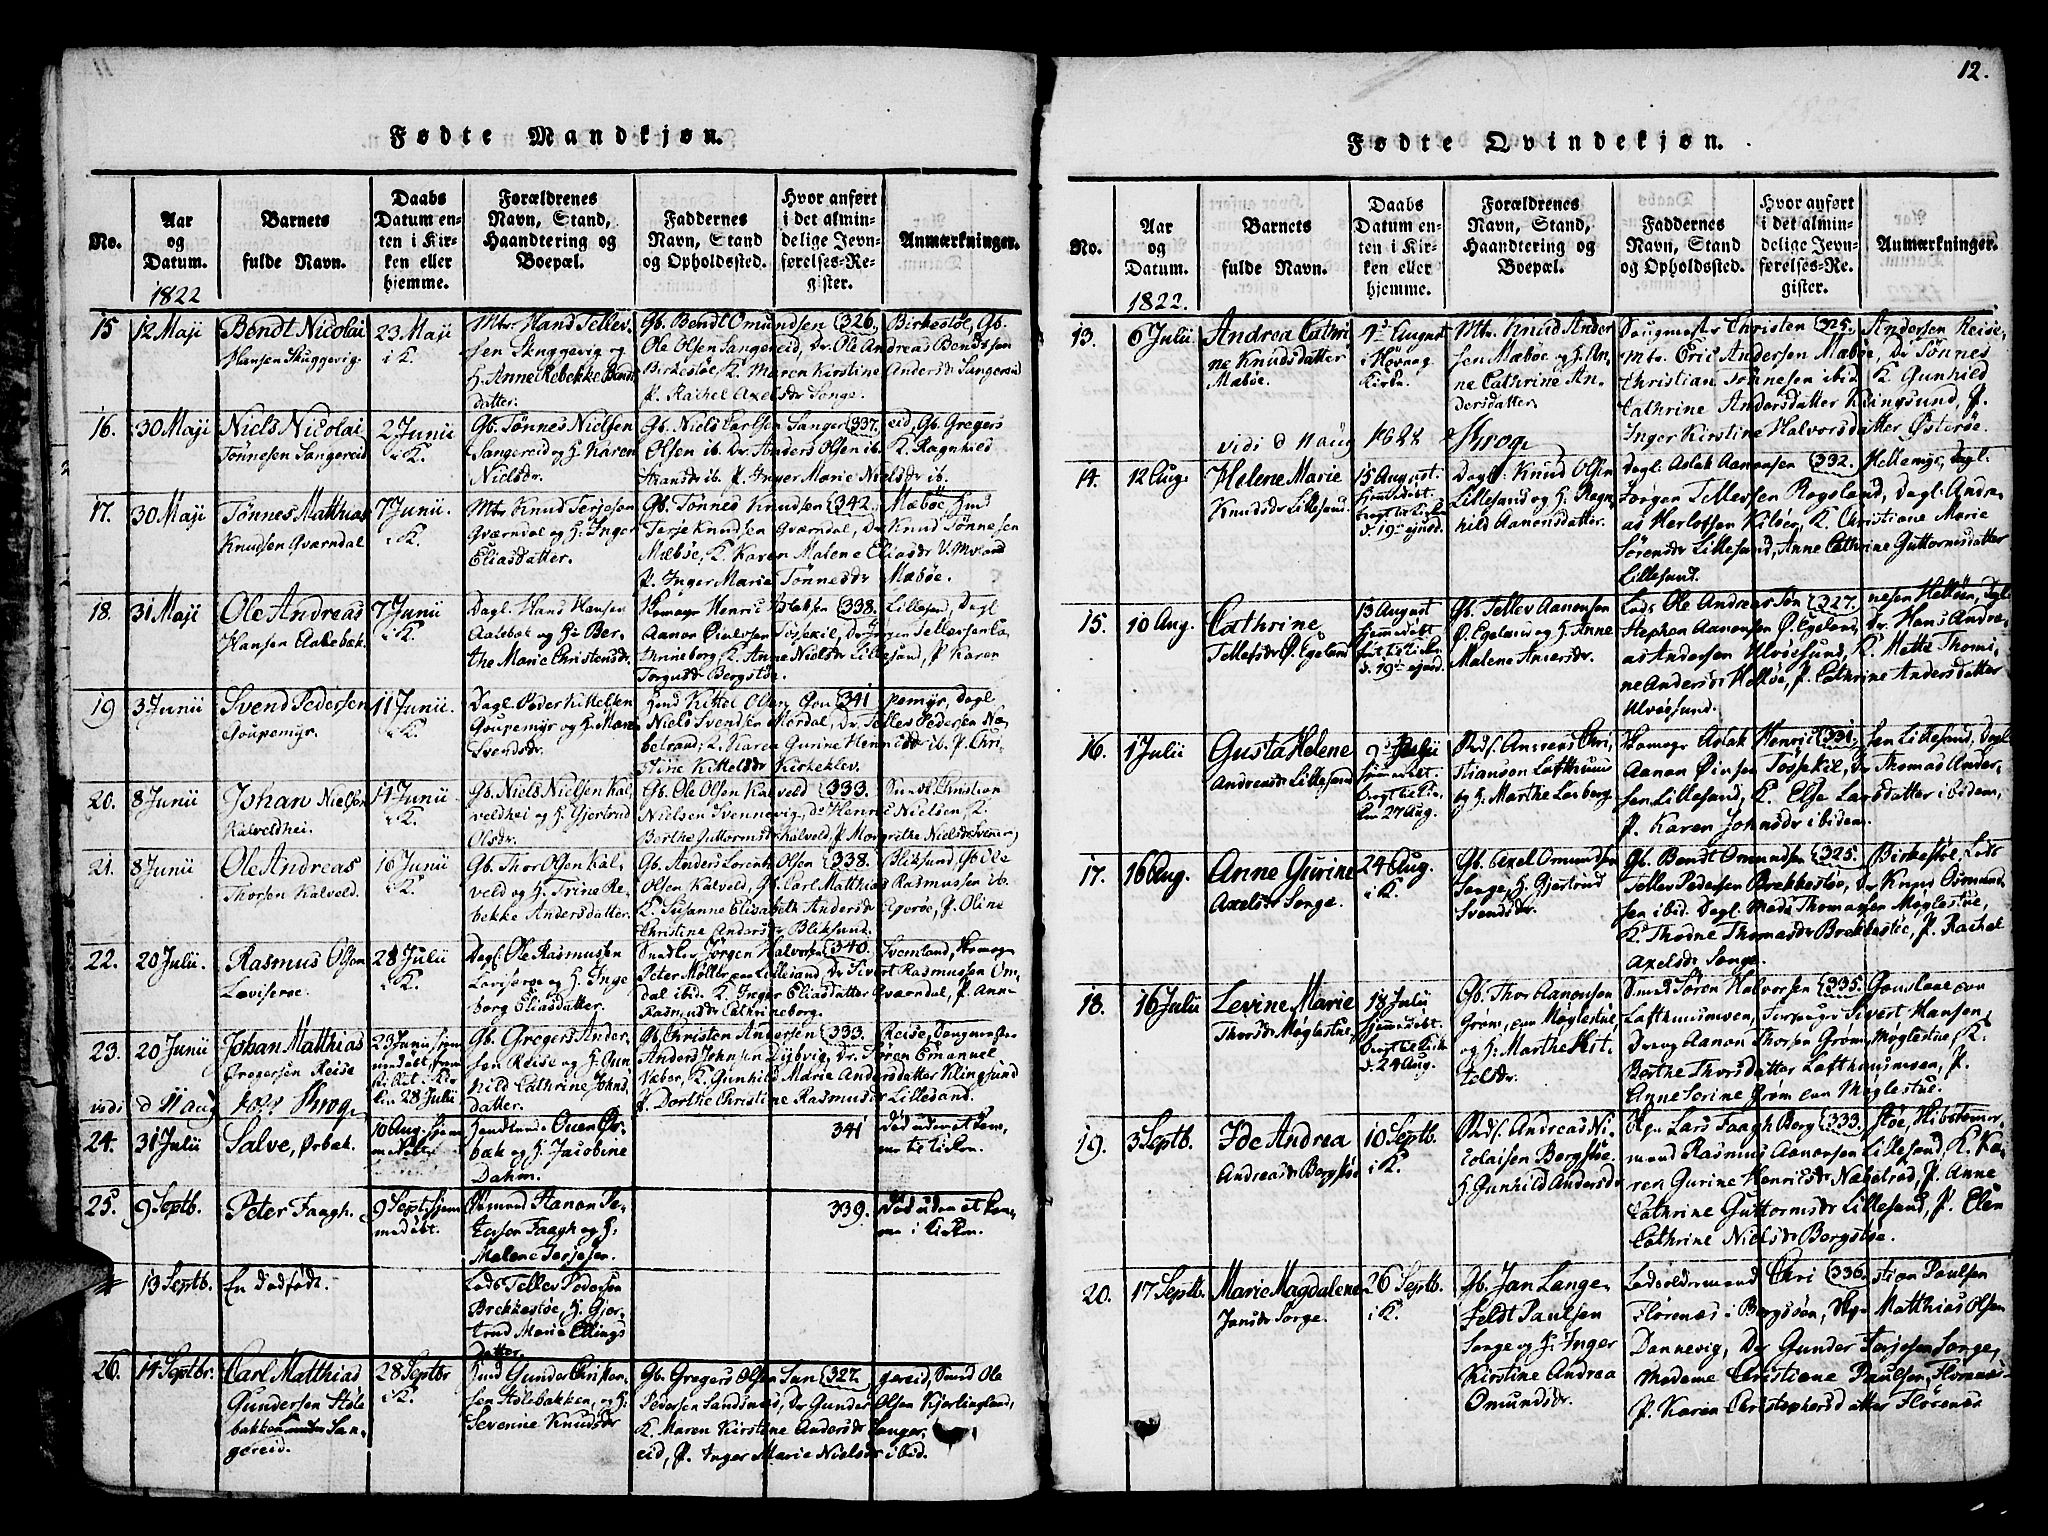 11
Fødte Mandkjøn.
No.
Aar
og
Datum.
1822
Barnets
fulde Navn.
Daabs
Datum en-
ten i Kir-
ken eller
hjemme.
Forældrenes
Navn, Stand,
Haandtering og
Boepæl.
Faddernes
Navn, Stand
og Opholdssted.
Hvor anført
i det almin-
delige Jevn-
førelses-Re-
gister.
Anmærkninger.
15
12 Maji
Bendt Nicolai
Hansen Skuggevig
23 Maji
i K.
Mtr. Hans Tellev-
sen Skuggevig og
H. Anne Rebekke Bendt
datter.
Gb. Bendt Omundsen (326. Birkestøe, Gb.
Ole Olsen Sangereid, Dr. Ole Andreas Bendtsen
Birkestøe, K. Maren Kirstine Andersdr Sangereid
P. Rachel Axelsdr Songe.
16.
30 Maji
Niels Nicolai
Tønnesen Sangereid
2 Junii
i K.
Gb. Tønnes Nielsen
Sangereid og H. Karen
Nielsdr.
Gb. Niels Carlsen Sanger (337. eid, Gb. Gregers
Olsen ib. Dr. Anders Olsen ib. K. Ragnhild
ib. P. Inger Marie Nielsdr ib.
17.
30 Maji
Tønnes Matthias
Knudsen Qværndal
7 Junii.
i K.
Mtr Knud Terjesen
Qværndal og H. Inger
Eliasdatter.
Gb. Tønnes Knudsen (342. Mæbøe,
Terje Knudsen Qværndal, Dr Knud Tønnesen
Mæbøe, K. Karen Malene Eliasdr
P. Inger Marie Tønnesdr Mæbøe.
18.
31 Maji
Ole Andreas
Hansen Aalebek.
7 Junii
i K.
Dagl. Hans Hansen
Aalebek og H. Ber-
the Marie Christensdr.
Skomagr Henric Aslaksen (338. Lillesand, Dagl
Aanon Øielvsen Tossekil, Dr Jørgen Tellevsen Ca-
thrineborg K. Anne Nielsdr Lillesand, P. Karen
Bergstøe.
19
3 Junii
Svend Pedersen
Goupemyr.
11 Junii.
i K.
Dagl. Peder Kittelsen
Goupemyr og H. Maren
Svendsdr.
Kittel Olsen Gou (341 pemyr, Dagl
Niels Svendsen Mordal, Dr. Tellev Pedersen
K. Karen Gurine Henricsdr ib. P. Chri-
stine Kittelsdr Kirkeklev.
20.
8 Junii
Johan Nielsen
Kalveldhei.
14 Junii.
i K.
Gb. Niels Nielsen Kal-
veldhei og H. Gjertrud
Olsdr.
Gb. Ole Olsen Kalveld (333. Christian
Nielsen Svennevig, Dr Henric Nielsen, K.
Berthe Guttormsdr Kalveld, P. Margrethe Nielsdr
21.
8 Junii
Ole Andreas
Thorsen Kalveld.
16 Junii
i K.
Gb. Thor Olsen Kal-
veld og H. Trine Re-
bekke Andersdatter.
Gb. Anders Lorentz Olsen (338. Bliksund, Gb Ole
Olsen Kalveld, Gb. Carl Matthias Rasmussen ib.
K. Susanne Elisabeth Andersdr Ageröe, P. Oline
Christine Andersdr Bliksund.
22.
20 Julii.
Rasmus Olsen
Loviseroe.
28 Julii
i K.
Dagl. Ole Rasmussen
Loviseroe og H. Inge-
borg Eliasdatter.
Jørgen Halvorsen (340. Skomagr
Peter Møller paa Lillesand, Dr Sivert Rasmussen Om-
dal ibid. K. Inger Eliasdatter Qværndal, P. Anne
Rasmusdr Cathrineborg.
23.
20 Junii
Johan Matthias
Gregersen Reise
23 Junii hjem-
medøbt, frem-
stillet i Kir-
ken 28 Julii
Gb. Gregers Ander-
sen Reise og H. Gun-
hild Cathrine Johns-
datter.
Gb. Christen Andersen (333. Reise,
Anders Johnsen Dybvig, Dr. Søren Emanuel
Væber, K. Gunhild Marie Andersdatter Klingsund
P. Dorthe Christine Rasmusdr Lillesand.
vidi d 11 aug
24.
31 Julii
Salve, Ørbek.
10 Aug. hjem-
medøbt
Owen Ør-
bek og H. Jacobine
Dahm.
341
Død uden at kom-
me til Kirken.
25.
9 Septb.
Peter Faagh.
9 Sept. hjem-
medøbt.
Hanon Pe-
tersen Faagh og H.
Malene Terjesen.
339.
Død uden at kom-
me i Kirken.
13 Septb.
En dødfødt.
Lods Tellev Pedersen
Brekkestøe, H. Gjer-
trud Marie Ellings
datter.
26.
14 Septbr.
Carl Matthias
Gundersen Støle-
bakken under San-
gereid.
28 Septbr
i K.
Gunder Christen-
sen Stølebakken, og H.
Severine Knudsdr
Gb. Gregers Olsen San (327. gereid, Smed Ole
Pedersen Sandsnes, Dr Gunder Olsen Kjerlingland,
K. Maren Kirstine Andersdr Sanger-
eid, P. Inger Marie Nielsdr ibid.
12.
Fødte Qvindekjøn.
No.
Aar
og
Datum.
1822.
Barnets
fulde Navn.
Daabs
Datum en-
ten i Kir-
ken eller
hjemme.
Forældrenes
Navn, Stand,
Haandtering og
Boepæl.
Faddernes
Navn, Stand
og Opholdssted.
Hvor anført
i det almin-
delige Jevn-
førelses-Re-
gister.
Anmærkninger.
13.
6 Julii
Andrea Cathri-
ne Knudsdatter
Mæbøe.
1st August
i Høvaag
Kirke.
Mtr. Knud Ander-
sen Mæbøe og H. An-
ne Cathrine An-
dersdatter.
Christen (325. Andersen Reise,
Mtr. Eric Andersen Mæbøe, Dr Tønnes
Christian Tønnesen ibid K. Gunhild
Cathrine Andersdatter Klingsund, P.
Inger Kirstine Halvorsdatter Østerøe.
vidi d 11 aug 1822
14.
12 Aug.
Helene Marie
Knudsdr Lillesand.
15 August
hjemmedøbt
d. 19de ejusd.
Dagl. Knud Olsen
Lillesand og H. Ragn-
hild Aanonsdatter.
Dagl. Aslak Aanonsen (332. Hellemyr, Dagl.
Jørgen Tellevsen Rogsland, Dagl. Andre-
as Herlofsen Kiløen, K. Christiane Marie
Sørensdr Lillesand, Anne Cathrine Guttormsdatter
Lillesand.
15.
10 Aug.
Cathrine
Tellefsdr Ø. Egeland
13 August
hjemmedøbt
d. 19de ejusd.
Gb. Tellev Aanonsen
Ø. Egeland og H. Anne
Malene Andersdr.
Lods Ole Andreas Tøn (327. nesen Helløen, Dagl
Stephen Aanonsen Ø. Egeland, Dr. Hans Andre-
as Andersen Ulvøesund, K. Mette Thomi-
ne Andersdr Helløe, P. Cathrine Andersdatter
Ulvøesund.
16.
1 Julii
Gusta Helene
Andreasdr Lillesand
9 Julii
hjemmedøbt.
27 Aug.
Andreas Chri-
stiansen Lofthuus
og H. Marthe Larberg.
Skomagr Aslak Henric (331. sen Lillesand, Dagl
Aanon Øinsen Tossekil, Dr Thomas Ander-
sen Lillesand, K. Else Larsdatter ibidem,
P. Karen Johnsdr ibidem.
17.
16 Aug.
Anne Gurine
Axelsdr Songe.
24 Aug.
i K.
Gb. Axel Omundsen
Songe, H. Gjertrud
Svendsdr.
Gb. Bendt Omundsen (325. Birkestøe, Lods
Tellev Pedersen Brekkestøe, Dr Knud Osmund-
sen ibid. Dagl. Mads Thomassen Møglestue,
K. Thodne Thomasdr Brekkestøe, P. Rachel
Axelsdr Songe.
18.
16 Julii
Levine Marie
Thorsdr Møglestue
18 Julii
hjemmedøbt.
d. 24 Aug.
Gb. Thor Aanonsen
Grøm, paa Møglestue,
og H. Marthe Kit-
telsdr.
Smed Søren Halvorsen (335. Gouslaae paa
Lofthuusmoen, Sivert Hansen,
Dreng Aanon Thorsen Grøm, Møglestue, K.
Berthe Thorsdatter Lofthuusmoen, P.
Anne Sorine Grøm paa Møglestue.
19.
3 Septb.
Ide Andrea
Andreasdr Bergstøe
10 Septb.
i K.
Andreas Ni-
colaisen Bergstøe.
H. Gunhild Andersdr
Skp. Lars Faagh Berg (333. støe,
mand Rasmus Aanonsen Lillesand, K. Ka-
ren Gurine Henricsdr Nabelrød, P. Anne
Cathrine Guttormsdr Lillesand, P. Elen
Cathrine Nielsdr Bergstøe.
20.
17 Septb.
Marie Magdalene
Jansdr Songe.
26 Septb.
i K.
Gb. Jan Lange-
feldt Paulsen
Songe og H. Inger
Kirstine Andrea
Omundsdr.
Lodsoldermand Chri (336. stian Paulsen
Florenæs i Bergsøen, Skp. Matthias Olsen
Dannevig, Dr Gunder Terjesen Songe,
Madame Christiane Paulsen, Florenæs-
P. Karen Christophersdatter Florenæs